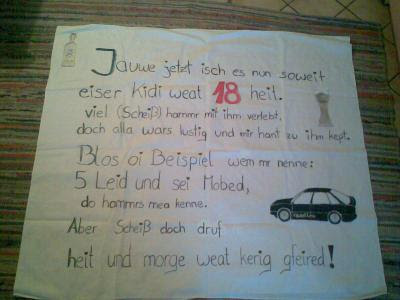 Jauwe jetzt isch es nun soweit
eiser Kidi weat 18 heit.
viel (Scheiß) hammr mit ihm verlebt,
doch alla wars lustig und mir hant zu ihm kept.
Blos oi Beispiel wem mr nenne:
5 Leid und sei Mobed,
do hammrs mea kenne.
Aber Scheiß doch druf
heit und morge weat kerig gfeired!